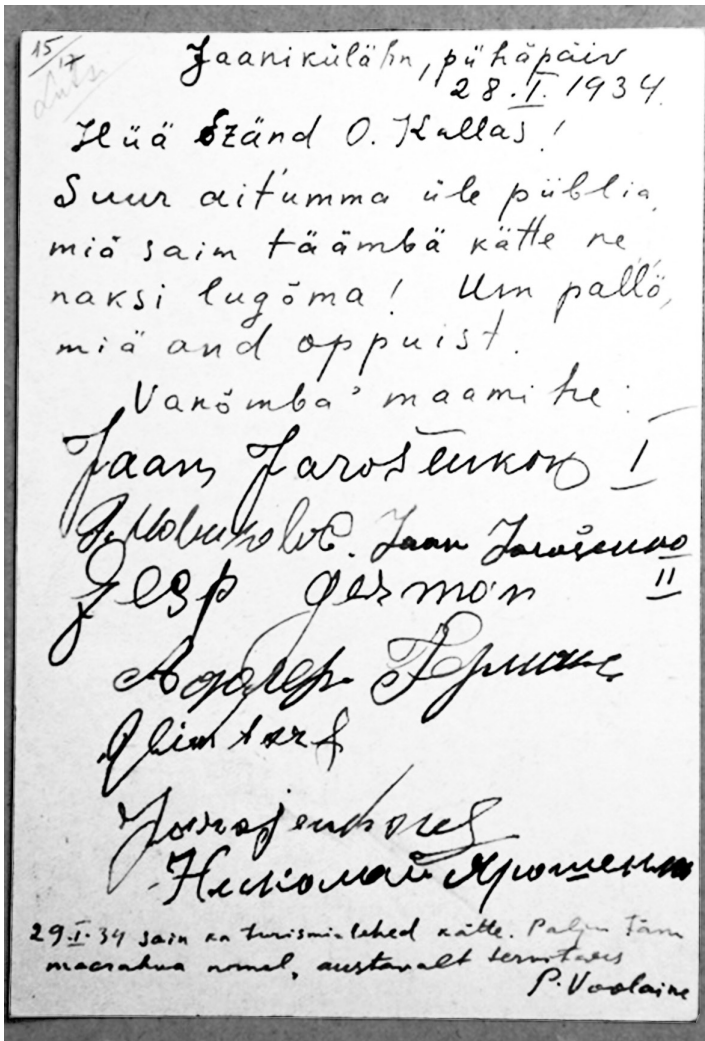 15/17
Lutsi
Jaanikülähn, pühäpäiv
28.I.1934.
Hüä Szänd O. Kallas!
Suur ait'umma üle piiblia,
miä saim täämbä kätte ne
naksi lugõma! Um pallo,
miä and oppuist.
Vanõmba' maamihe:
Jaan Jarošenkov I
Jaan Jarošenko
II
Jesp German
Герман
Jarojenkov
Николай Ярошенко
29.I.34 sain ka turismilehed kätte. Palju tänu
maarahva nimel, austavalt tervitades
P. Voolaine